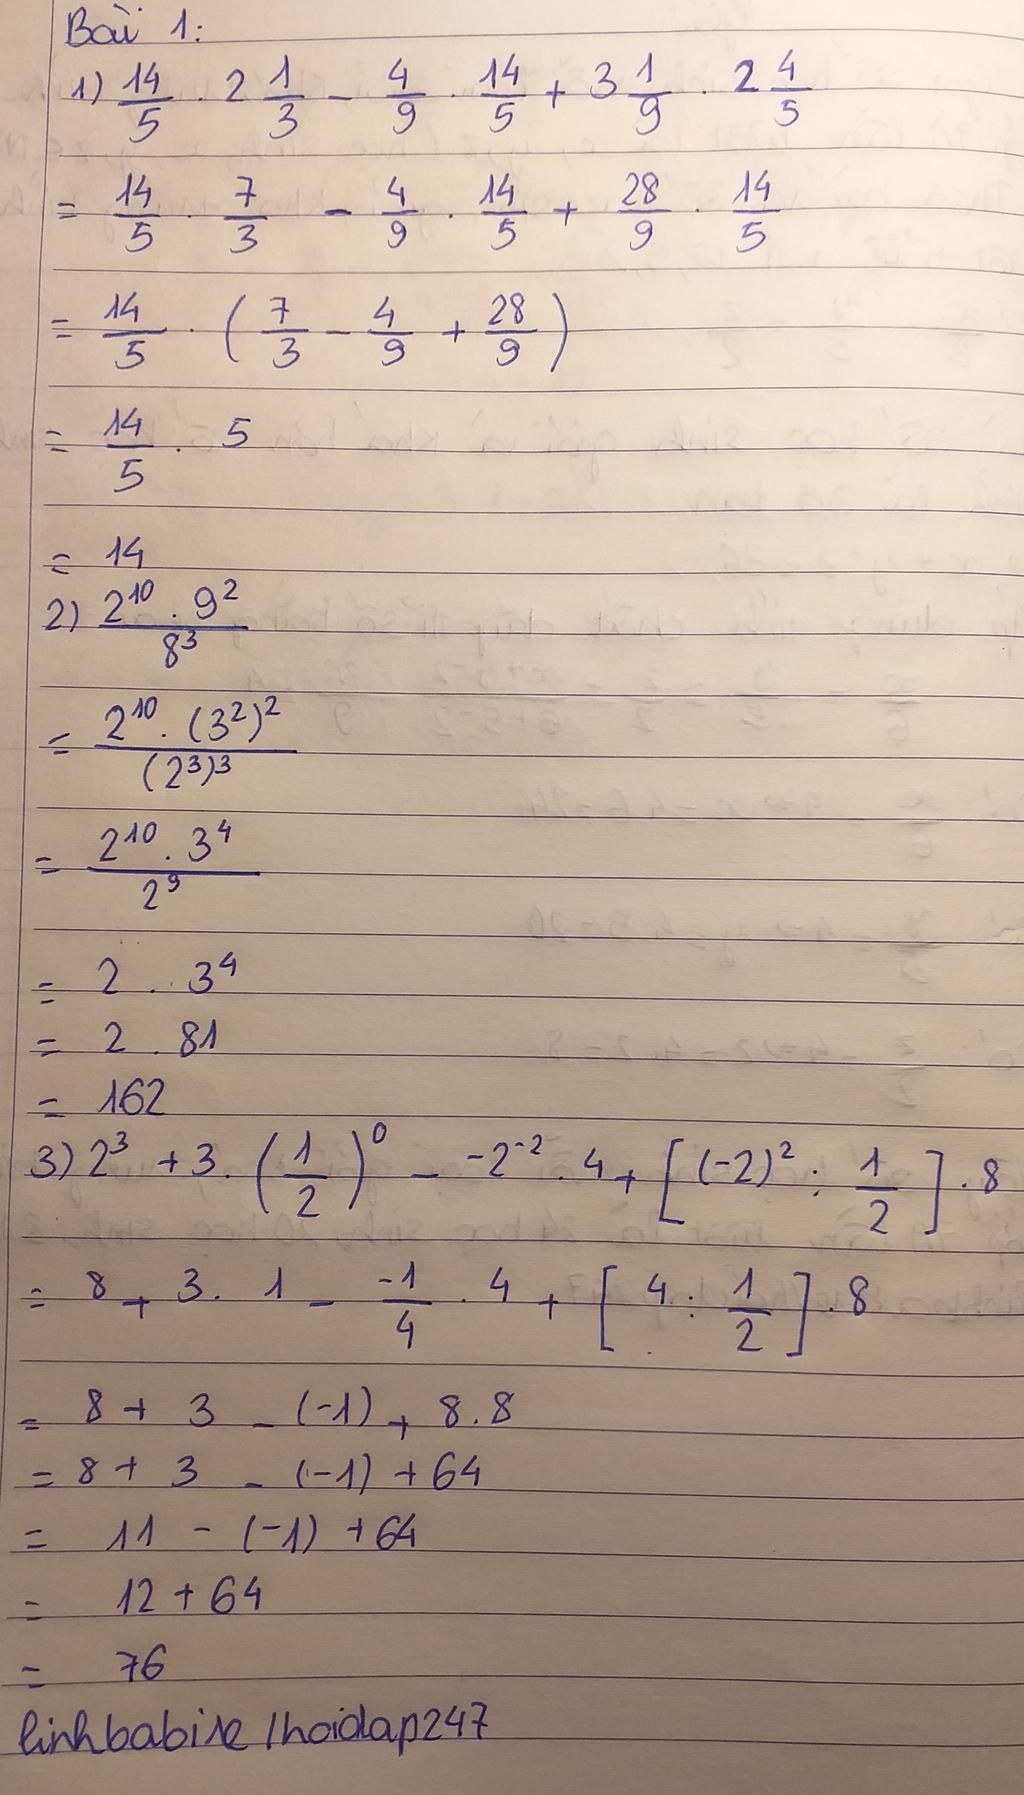 Bài 1:
1) 14/5 . 2 1/3 - 4/9 . 14/5 + 3 1/9 . 2 4/5
= 14/5 . 7/3 - 4/9 . 14/5 + 28/9 . 14/5
= 14/5 . (7/3 - 4/9 + 28/9)
= 14/5 . 5
= 14
2) 2¹⁰ . 9² / 8³
= 2¹⁰ . (3²)² / (2³)³
= 2¹⁰ . 3⁴ / 2⁹
= 2 . 3⁴
= 2 . 81
= 162
3) 2³ + 3 . (1/2)⁰ - -2⁻² . 4 + [(-2)² : 1/2] . 8
= 8 + 3 . 1 - -1/4 . 4 + [4 : 1/2] . 8
= 8 + 3 - (-1) + 8 . 8
= 8 + 3 - (-1) + 64
= 11 - (-1) + 64
= 12 + 64
= 76
linhbabise/hoidap247